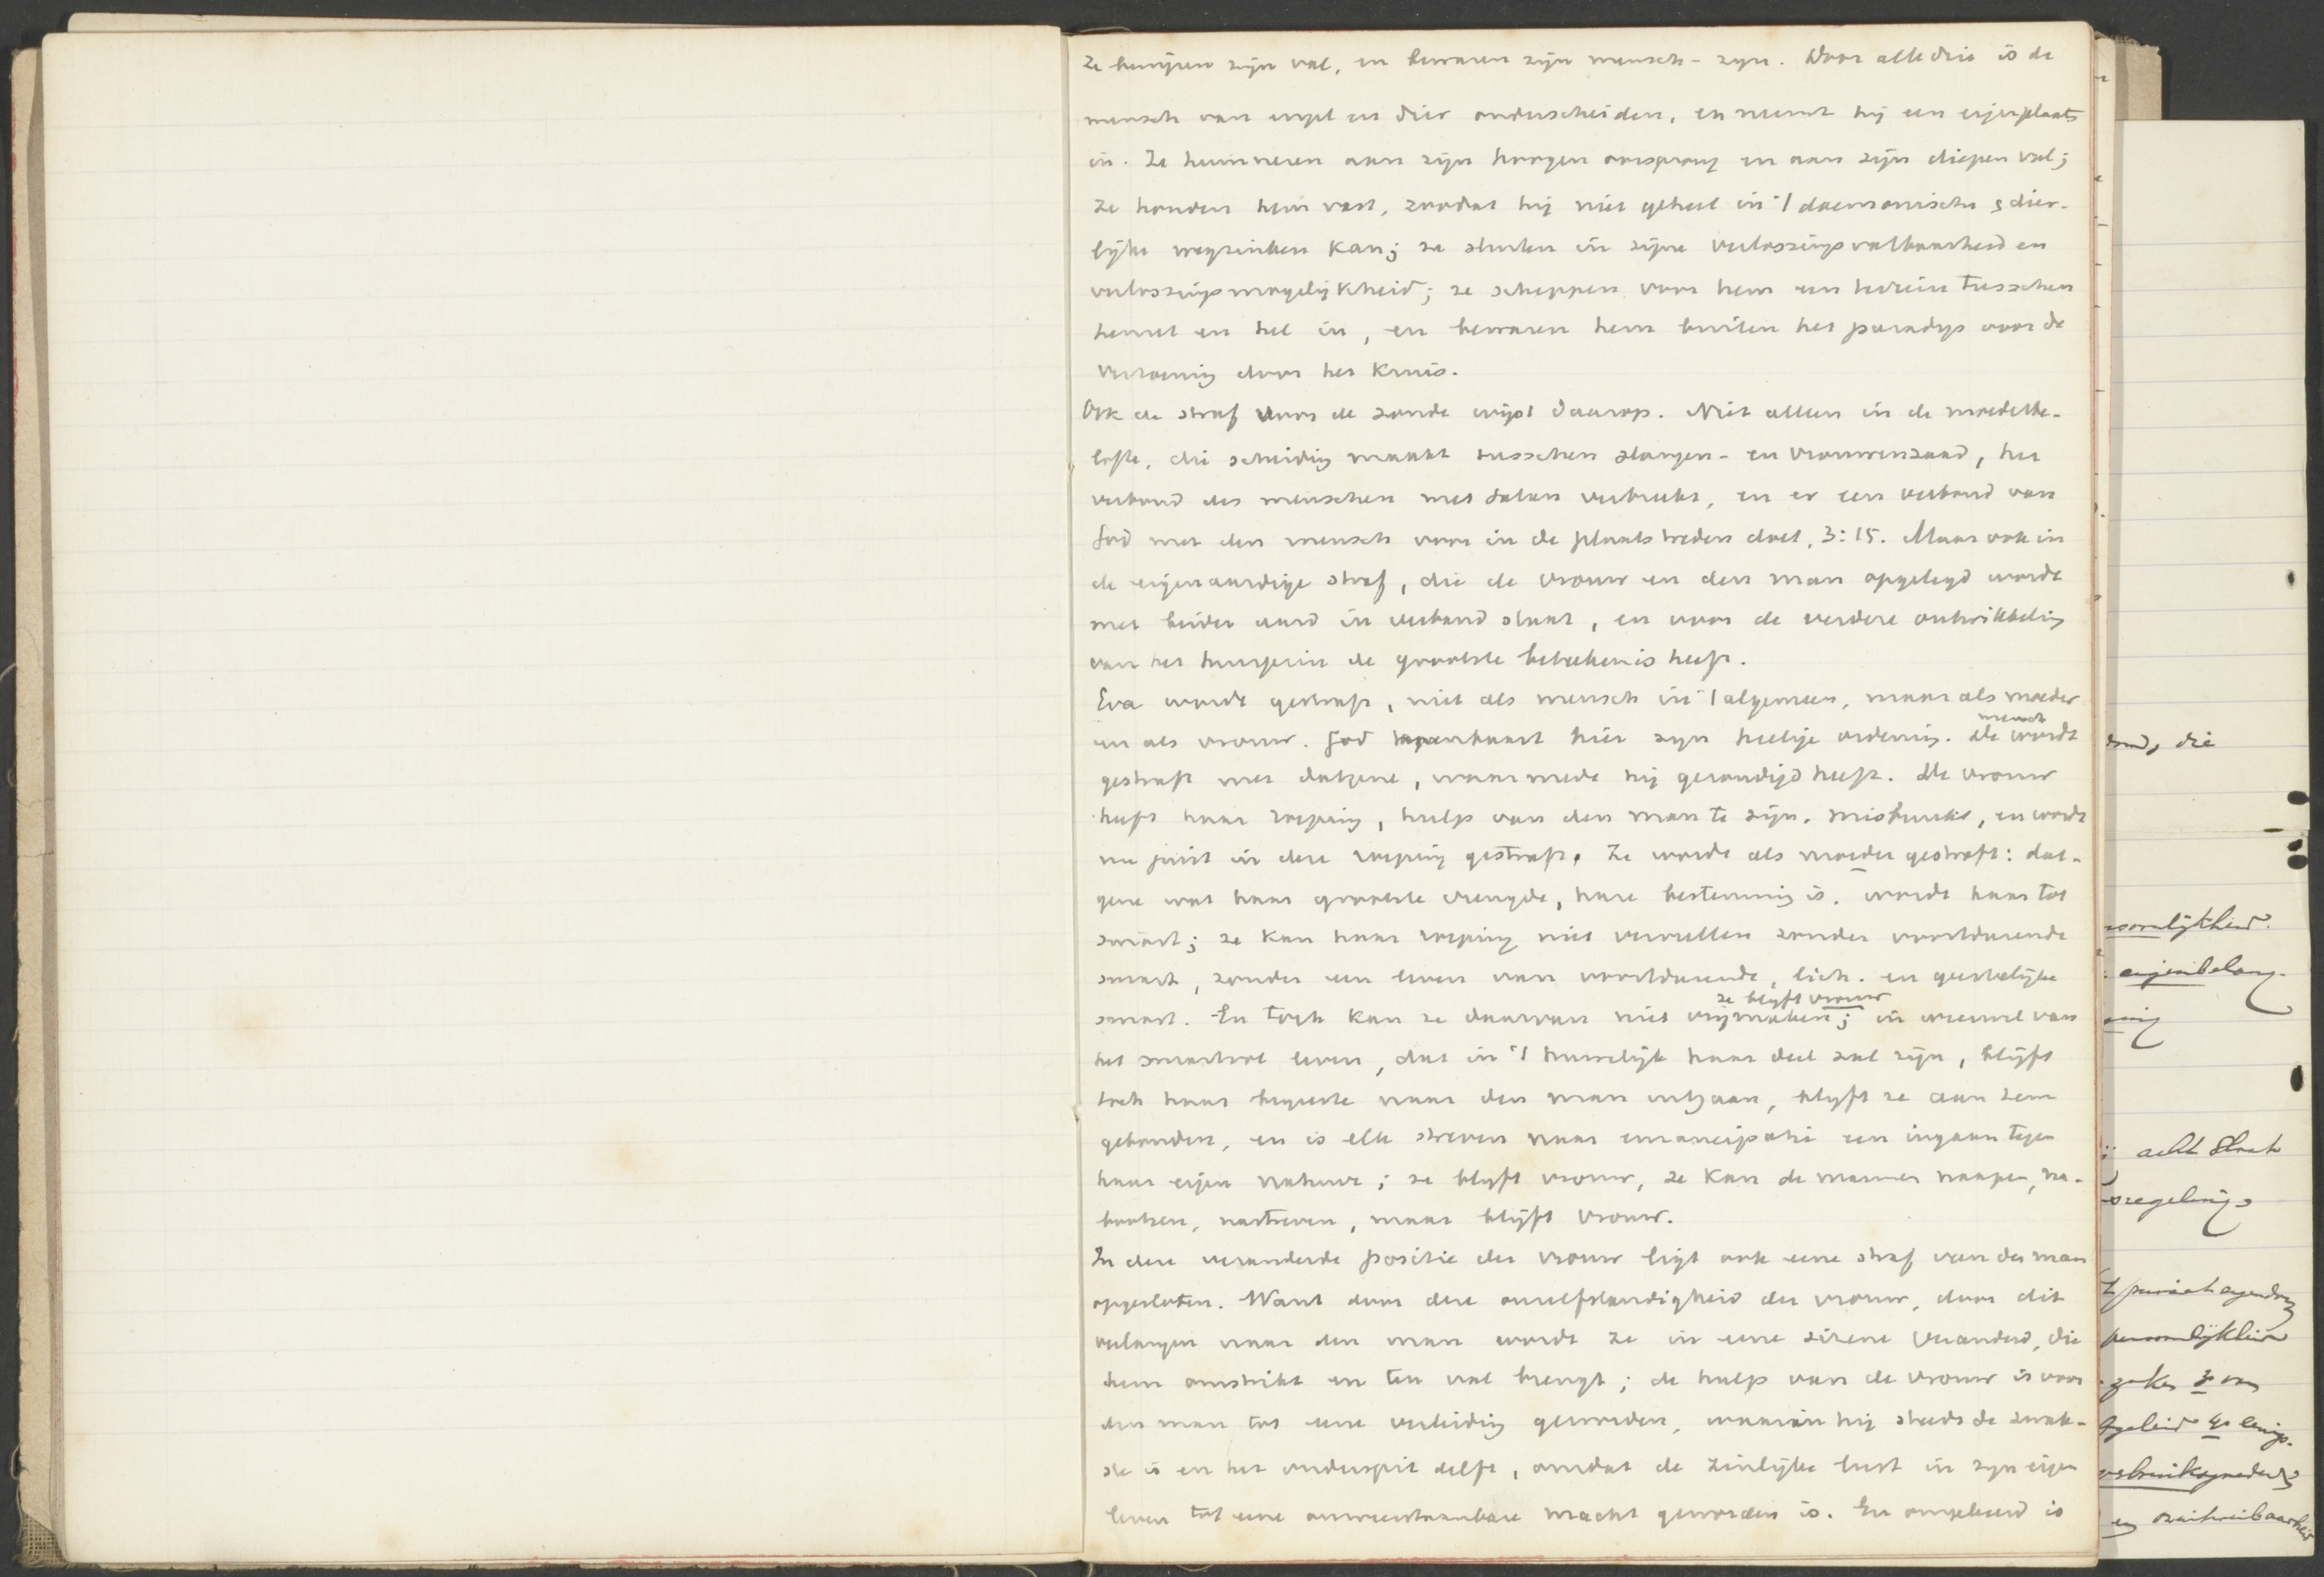 Ze bewijzen zijn val, en bewaren zijn mensch-zijn. Door alle drie is de
mensch van engel en dier onderscheiden, en neemt hij een eigen plaats
in. Ze herinneren aan zijn hoogen oorsprong en aan zijn diepen val;
ze houden hem vast, zoodat hij niet geheel in 't daemonische & dier-
lijke wegzinken kan; ze sluiten in zijne verlossingsvatbaarheid en
verlossingsmogelijkheid; ze scheppen voor hem een terrein tusschen
hemel en hel in, en bewaren hem buiten het paradijs voor de
verzoening door het Kruis.
Ook de straf voor de zonde wijst daarop. Niet alleen in de moederbe-
lofte, die scheiding maakt tusschen slangen- en vrouwenzaad, het
verbond des menschen met Satan verbreekt, en er een verbond van
God met den mensch voor in de plaats treden doet, 3:15. Maar ook in
de eigenaardige straf, die de vrouw en den man opgelegd wordt
met beider aard in verband staat, en voor de verdere ontwikkeling
van het huisgezin de grootste beteekenis heeft.
Eva wordt gestraft, niet als mensch in 't algemeen, maar als moeder
en als vrouw. God openbaart hier zijn heilige ordening. De mensch wordt
gestraft met datgene, waarmede hij gezondigd heeft. De vrouw
heeft haar roeping, hulp van den man te zijn, misbruikt, en wordt
nu juist in deze roeping gestraft. Ze wordt als moeder gestraft: dat-
gene wat haar grootste vreugde, hare bestemming is, wordt haar tot
smart; ze kan haar roeping niet vervullen zonder voortdurende
smart, zonder een leven van voortdurende, lich. en geestelijke
smart. En toch kan ze daarvan niet vrijmaken; ze blijft vrouw in weerwil van
het smartvol leven, dat in 't huwelijk haar deel zal zijn, blijft
toch haar begeerte naar den man uitgaan, blijft ze aan hem
gebonden, en is elk streven naar emancipatie een ingaan tegen
haar eigen natuur; ze blijft vrouw, ze kan de mannen naäpen, na-
bootsen, nastreven, maar blijft vrouw.
In deze veranderde positie der vrouw ligt ook eene straf van den man
opgesloten. Want door deze onzelfstandigheid der vrouw, door dit
verlangen naar den man wordt ze in eene sirene veranderd, die
hem omstrikt en ten val brengt; de hulp van de vrouw is voor
den man tot eene verleiding geworden, waarin hij steeds de zwak-
ste is en het onderspit delft, omdat de zinlijke lust in zijn eigen
leven tot eene onweerstaanbare macht geworden is. En omgekeerd is
die
eigenbelang-
acht Strak
regeling
persoonlijkheid